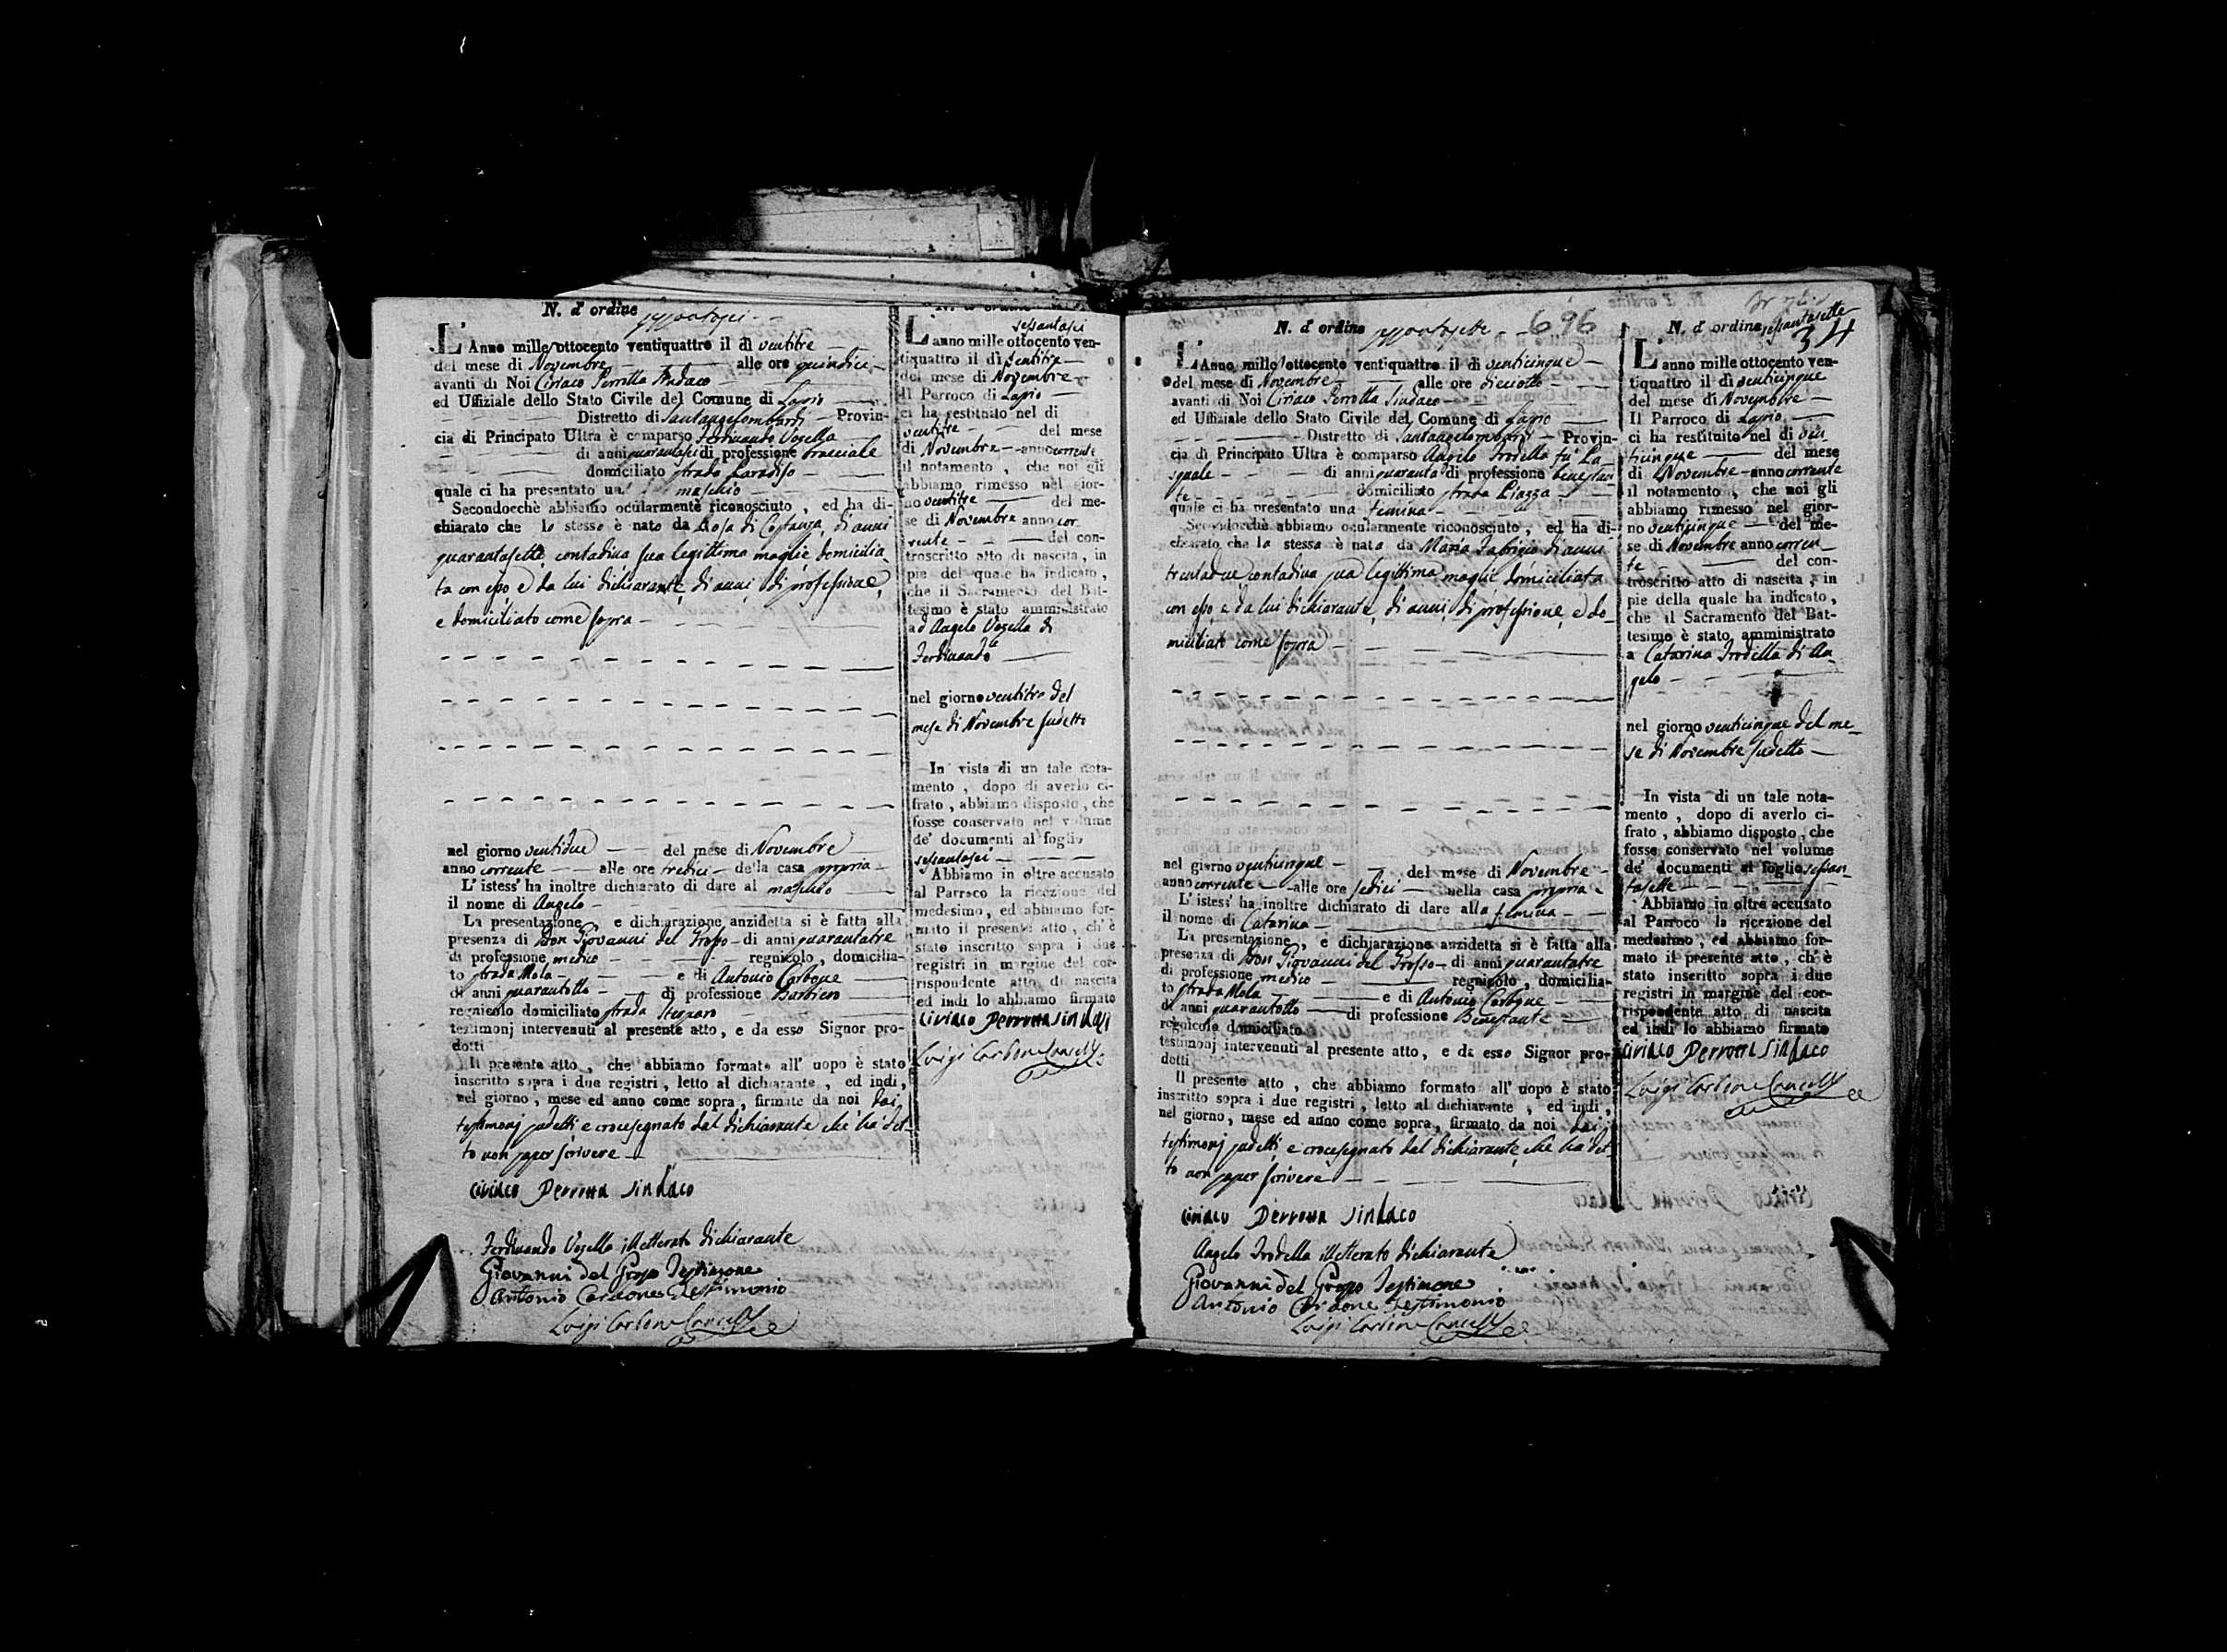 N. d' ordine sessantasei
L' Anno mille ottocento ventiquattro il di ventitre
del mese di Novembre alle ore quindici
avanti di Noi Ciriaco Perrotta Sindaco
ed Uffiziale dello Stato Civile del Comune di Lapio
Distretto di Santangelombardi Provin-
cia di Principato Ultra è comparso Ferdinando Vozella
di anni quarantasei di professione bracciale
domiciliato strada Paradiso
quale ci ha presentato un maschio
Secondocchè abbiamo ocularmente riconosciuto , ed ha di-
chiarato che lo stesso è nato da Rosa di Costanza di anni
quarantasette contadina sua legittima moglie domicilia
ta con esso e da lui dichiarante, di anni, di professione,
e domiciliato come sopra
nel giorno ventidue del mese di Novembre
anno corrente alle ore tredici nella casa propria
L' istess' ha inoltre dichiarato di dare al maschio
il nome di Angelo
La presentazione e dichiarazione anzidetta si è fatta alla
presenza di Don Giovanni del Grosso di anni quarantatre
di professione medico regnicolo , domicilia-
to strada Mola e di Antonio Carbone
di anni quarantotto di professione Barbiero
regnicolo domiciliato strada
testimonj intervenuti al presente atto , e da esso Signor pro-
dotti
Il presente atto , che abbiamo formato all' uopo è stato
inscritto sopra i due registri , letto al dichiarante , ed indi,
nel giorno , mese ed anno come sopra , firmato da noi dai
testimonj sudetti e crocesegnato dal dichiarante che ha det-
to non saper scrivere
Ciriaco Perrotta Sindaco
Ferdinando Vozella illetterato dichiarante
Giovanni del Grosso Testimone
Antonio Carbone Testimonio
Luigi Carbone Cancell.
N. d' ordine
sessantasei
L' anno mille ottocento ven-
tiquattro il di ventitre
del mese di Novembre
Il Parroco di Lapio
ci ha restituito nel di
ventitre del mese
di Novembre anno corrente
il notamento , che noi gli
abbiamo rimesso nel gior-
no ventitre del me-
se di Novembre anno cor
rente del con-
troscritto atto di nascita, in
pie del quale ha indicato ,
che il Sacramento del Bat-
tesimo è stato amministrato
ad Angelo Vozella di
Ferdinando
nel giorno ventitre del
mese di Novembre sudetto
In vista di un tale nota-
mento , dopo di averlo ci-
frato , abbiamo disposto , che
fosse conservato nel volume
de' documenti al foglio
sessantasei
Abbiamo in oltre accusato
al Parroco la ricezione del
medesimo, ed abbiamo for-
mato il presente atto , ch' è
stato inscritto sopra i due
registri in margine del cor-
rispondente atto di nascita
ed indi lo abbiamo firmato
Ciriaco Perrotta Sindaco
Luigi Carbone Cancell.
N. d' ordine sessantasette 696
L' Anno mille ottocento ventiquattro il di venticinque
del mese di Novembre alle ore diciotto
avanti di Noi Ciriaco Perrotta Sindaco
ed Uffiziale dello Stato Civile del Comune di Lapio
Distretto di Santangelombardi Provin-
cia di Principato Ultra è comparso Angelo Trodella fu Pa
squale di anni quaranta di professione benestan
te domiciliato strada Piazza
quale ci ha presentato una femina
Secondocchè abbiamo ocularmente riconosciuto , ed ha di-
chiarato che la stessa è nata da Maria Fabrizio di anni
trentadue contadina sua legittima moglie domiciliata
con esso e da lui dichiarante, di anni, di professione, e do
miciliato come sopra
nel giorno venticinque del mese di Novembre
anno corrente alle ore sedici nella casa propria
L' istess' ha inoltre dichiarato di dare alla femina
il nome di Catarina
La presentazione , e dichiarazione anzidetta si è fatta alla
presenza di Don Giovanni del Grosso di anni quarantatre
di professione medico regnicolo , domicilia-
to strada Mola e di Antonio Carbone
di anni quarantotto di professione Benestante
regnicolo domiciliato
testimonj intervenuti al presente atto , e da esso Signor pro-
dotti
Il presente atto , che abbiamo formato all' uopo è stato
inscritto sopra i due registri , letto al dichiarante , ed indi ,
nel giorno , mese ed anno come sopra , firmato da noi dai
testimonj sudetti e crocesegnato dal dichiarante che ha det-
to non saper scrivere
Ciriaco Perrotta Sindaco
Angelo Trodella illetterato dichiarante
Giovanni del Grosso Testimone
Antonio Carbone Testimonio
Luigi Carbone Cancell.
N. d' ordine sessantasette
34
L' anno mille ottocento ven-
tiquattro il di venticinque
del mese di Novembre
Il Parroco di Lapio
ci ha restituito nel di ven
ticinque del mese
di Novembre anno corrente
il notamento , che noi gli
abbiamo rimesso nel gior-
no venticinque del me-
se di Novembre anno corren
te del con-
troscritto atto di nascita , in
pie della quale ha indicato ,
che il Sacramento del Bat-
tesimo è stato amministrato
a Catarina Trodella di An
gelo
nel giorno venticinque del me
se di Novembre sudetto
In vista di un tale nota-
mento , dopo di averlo ci-
frato , abbiamo disposto , che
fosse conservato nel volume
de' documenti al foglio sessan
tasette
Abbiamo in oltre accusato
al Parroco la ricezione del
medesimo , ed abbiamo for-
mato il presente atto , ch' è
stato inscritto sopra i due
registri in margine del cor-
rispondente atto di nascita
ed indi lo abbiamo firmato
Ciriaco Perrotta Sindaco
Luigi Carbone Cancell.